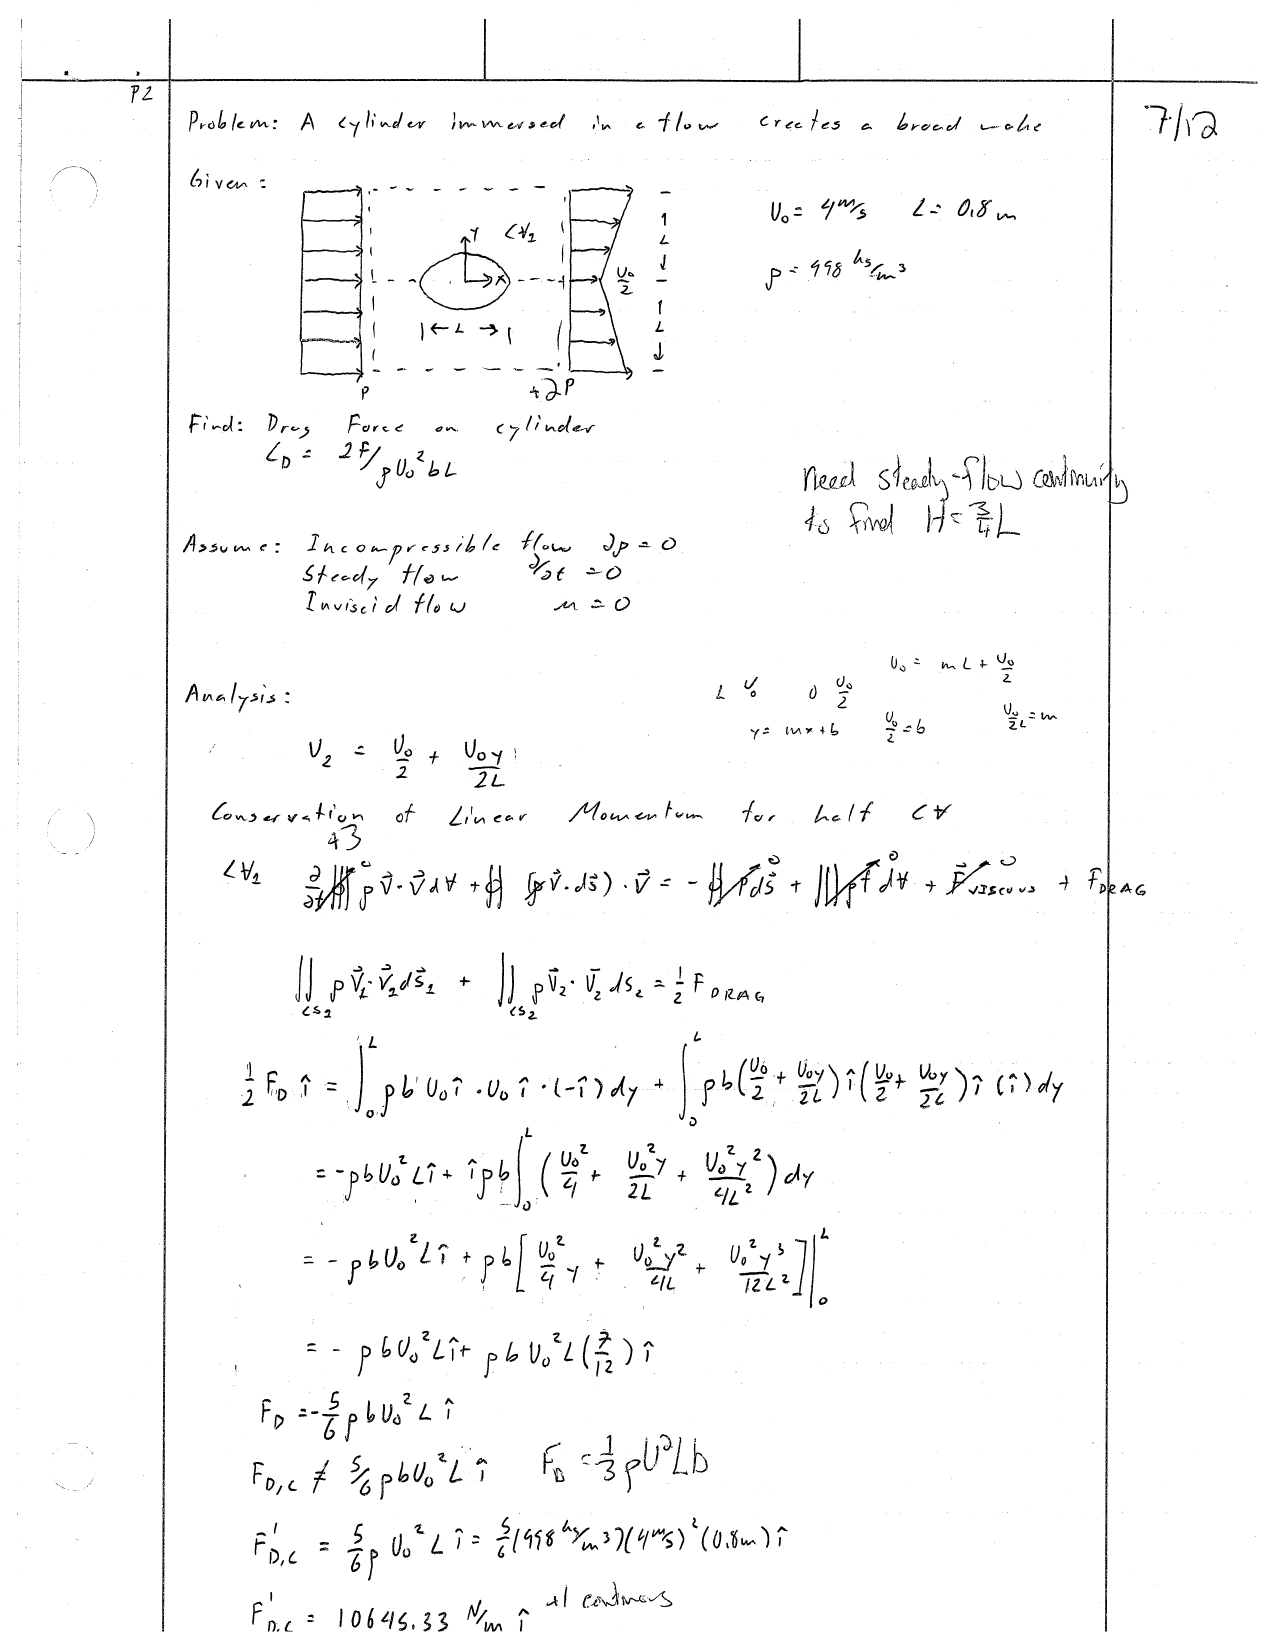 P2
Problem: A cylinder immersed in a flow creates a broad wake
7/12
Given:
U₀ = 4 m/s L = 0.8 m
ρ = 998 kg/m³
y C∀₁
x
U₀/2
|← L →|
L
L
P
+2 P
Find: Drag Force on cylinder
C_D = 2F/ρU₀²bL
need steady-flow continuity
to find H = 3/4 L
Assume: Incompressible flow ∂ρ = 0
Steady flow ∂/∂t = 0
Inviscid flow μ = 0
U₀ = mL + U₀/2
Analysis:
L U₀ 0 U₀/2
y = mx + b U₀/2 = b U₀/2L = m
U₂ = U₀/2 + U₀y/2L
Conservation of Linear Momentum for half C∀
+3
C∀₁ ∂/∂t ∭ ρ V⃗·V⃗ d∀ + ∯ (ρV⃗·ds⃗)·V⃗ = - ∯ P ds⃗ + ∭ ρf⃗ d∀ + F⃗_VISCOUS + F_DRAG
0 0 0 0
∬_CS₁ ρ V⃗₁·V⃗₁ ds⃗₁ + ∬_CS₂ ρ V⃗₂·V⃗₂ ds₂ = 1/2 F_DRAG
1/2 F_D î = ∫₀ᴸ ρb U₀î·U₀î·(-î) dy + ∫₀ᴸ ρb (U₀/2 + U₀y/2L) î (U₀/2 + U₀y/2L) î (î) dy
= -ρbU₀²Lî + îρb ∫₀ᴸ (U₀²/4 + U₀²y/2L + U₀²y²/4L²) dy
= -ρbU₀²Lî + ρb [U₀²/4 y + U₀²y²/4L + U₀²y³/12L²] |₀ᴸ
= -ρbU₀²Lî + ρbU₀²L (7/12) î
F_D = -5/6 ρbU₀²L î
F_D,C ≠ 5/6 ρbU₀²L î F_D = 1/3 ρU²Lb
F'_D,C = 5/6 ρU₀²L î = 5/6 (998 kg/m³)(4 m/s)²(0.8m) î
F'_D,C = 10645.33 N/m î +1